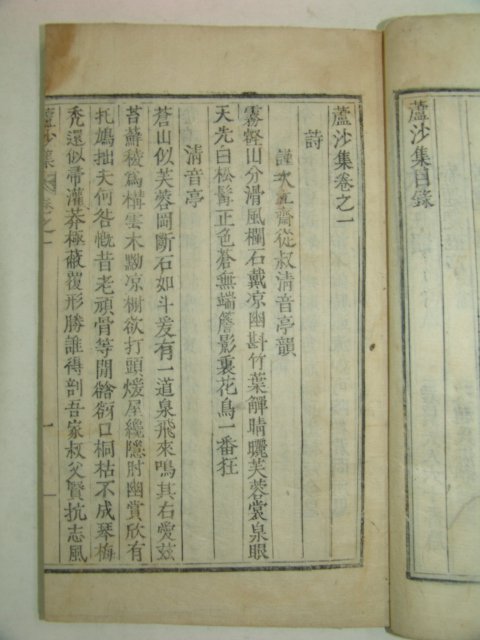 蘆沙集目錄
蘆沙集卷之一
詩
謹次齋從叔清音亭韻
霧山分滑風欄石戴凉幽斟竹葉觶晴曬芙蓉裳泉眼
天先白松髯正色蒼無端簷影裏花鳥一番狂
清音亭
蒼山似芙蓉闘斷石如斗爰有一道泉飛來鳴其右愛玆
苔蘚稜爲構雲木黝凉榭欲打頭煖屋纔隱肘幽賞欣有
托鳩拙夫何咎慨昔老頑骨等閒谽谺口桐枯不成琴梅
禿還似帚灌莽極蔽覆形勝誰得剖吾家叔父賢抗志風
蘆沙集 卷之一 一